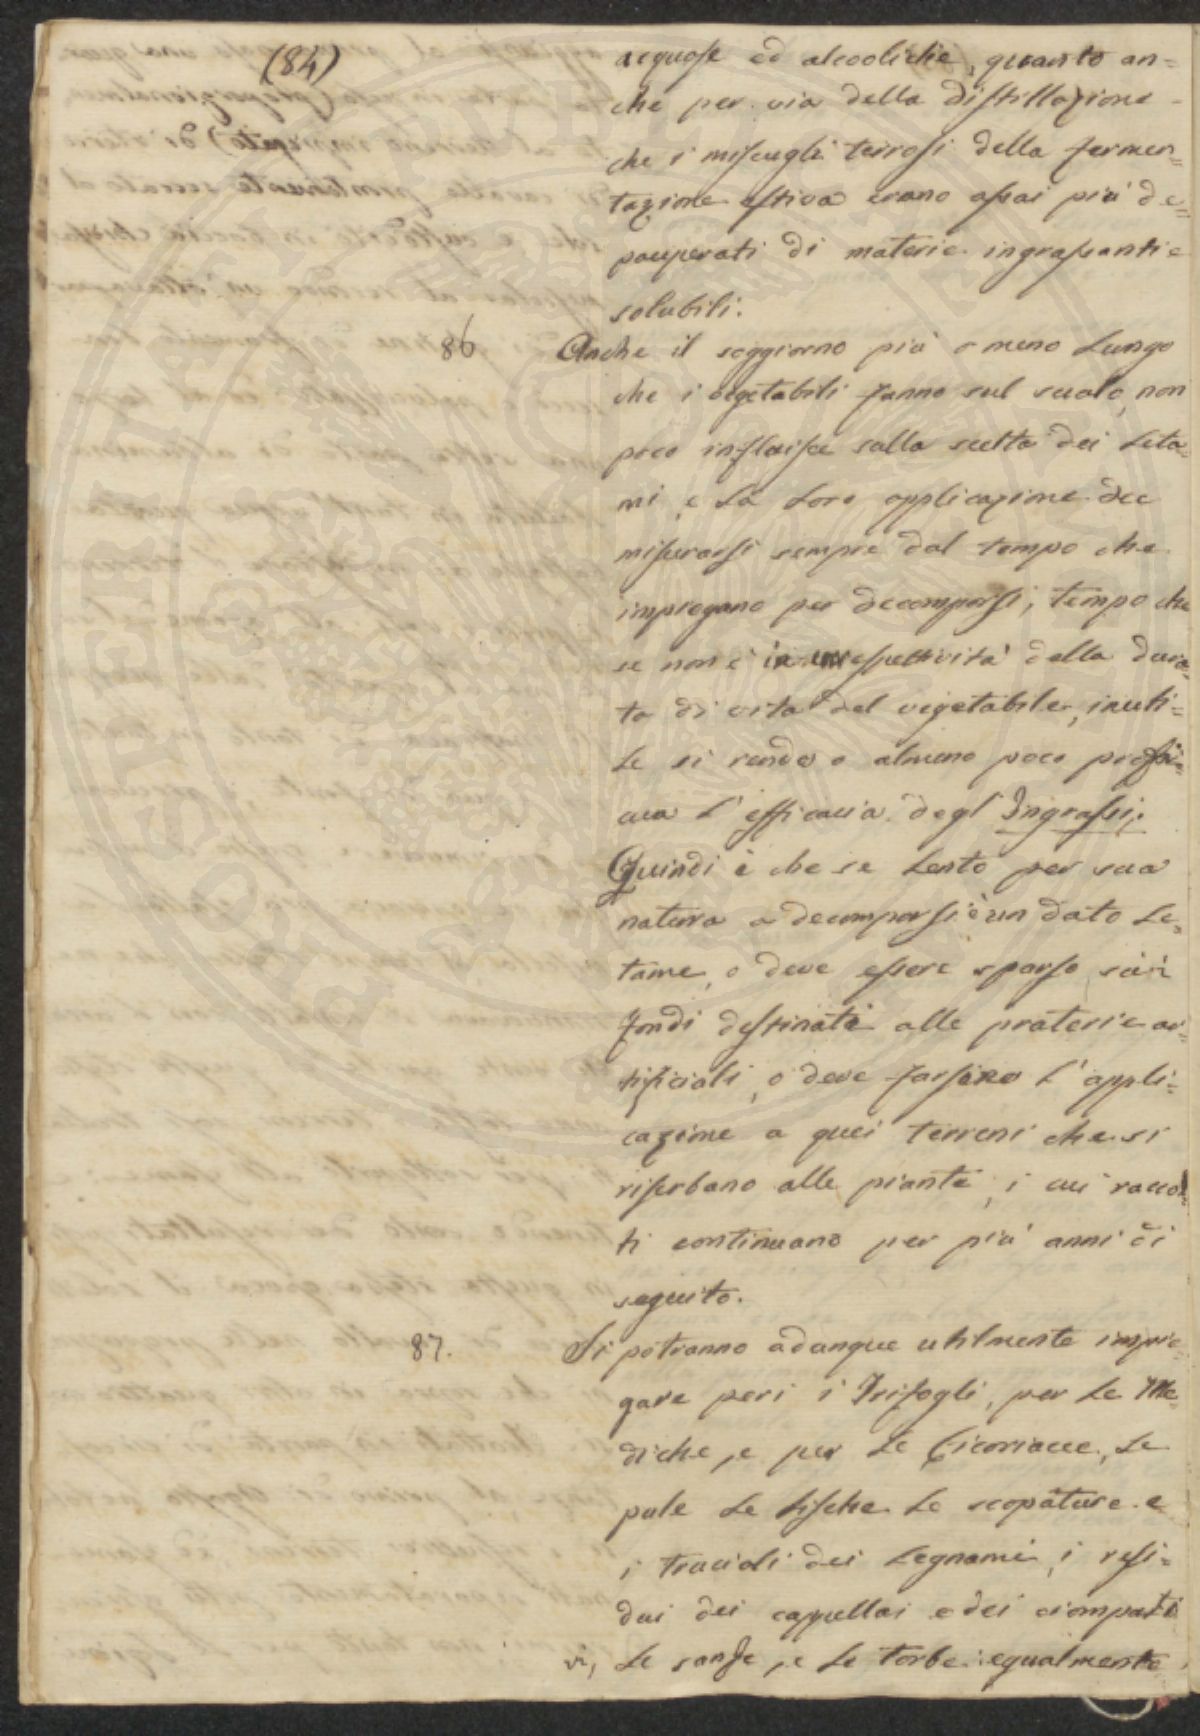 (84)
acquose ed alcooliche, quanto an=
che per via della distillazione
che i miscugli terrosi della fermen=
tazione estiva erano assai più de=
pauperati di materie ingrassanti e
solubili.
86 Anche il soggiorno più o meno lungo
che i vegetabili fanno sul suolo, non
poco influisce sulla scelta dei leta=
mi, e la loro applicazione dee
misurarsi sempre dal tempo che
impiegano per decomporsi, tempo che
se non è in respettività della dura=
ta di vita del vegetabile, inuti=
le si rende o almeno poco profi=
cua l'efficacia degl'Ingrassi;
Quindi è che se lento per sua
natura a decomporsi è un dato le=
tame, o deve essere sparso sui
fondi destinati alle praterie ar=
tificiali, o deve farsene l'appli=
cazione a quei terreni che si
riserbano alle piante, i cui raccol
ti continuano per più anni di
seguito.
87. Si potranno adunque utilmente impie=
gare peri i Trifogli, per le Me=
diche, e per le Cicoriacee, le
pule le lische le scopature e
i trucioli dei legnami, i resi=
dui dei cappellai e dei ciompati
vi, le sanse, e le torbe: egualmente